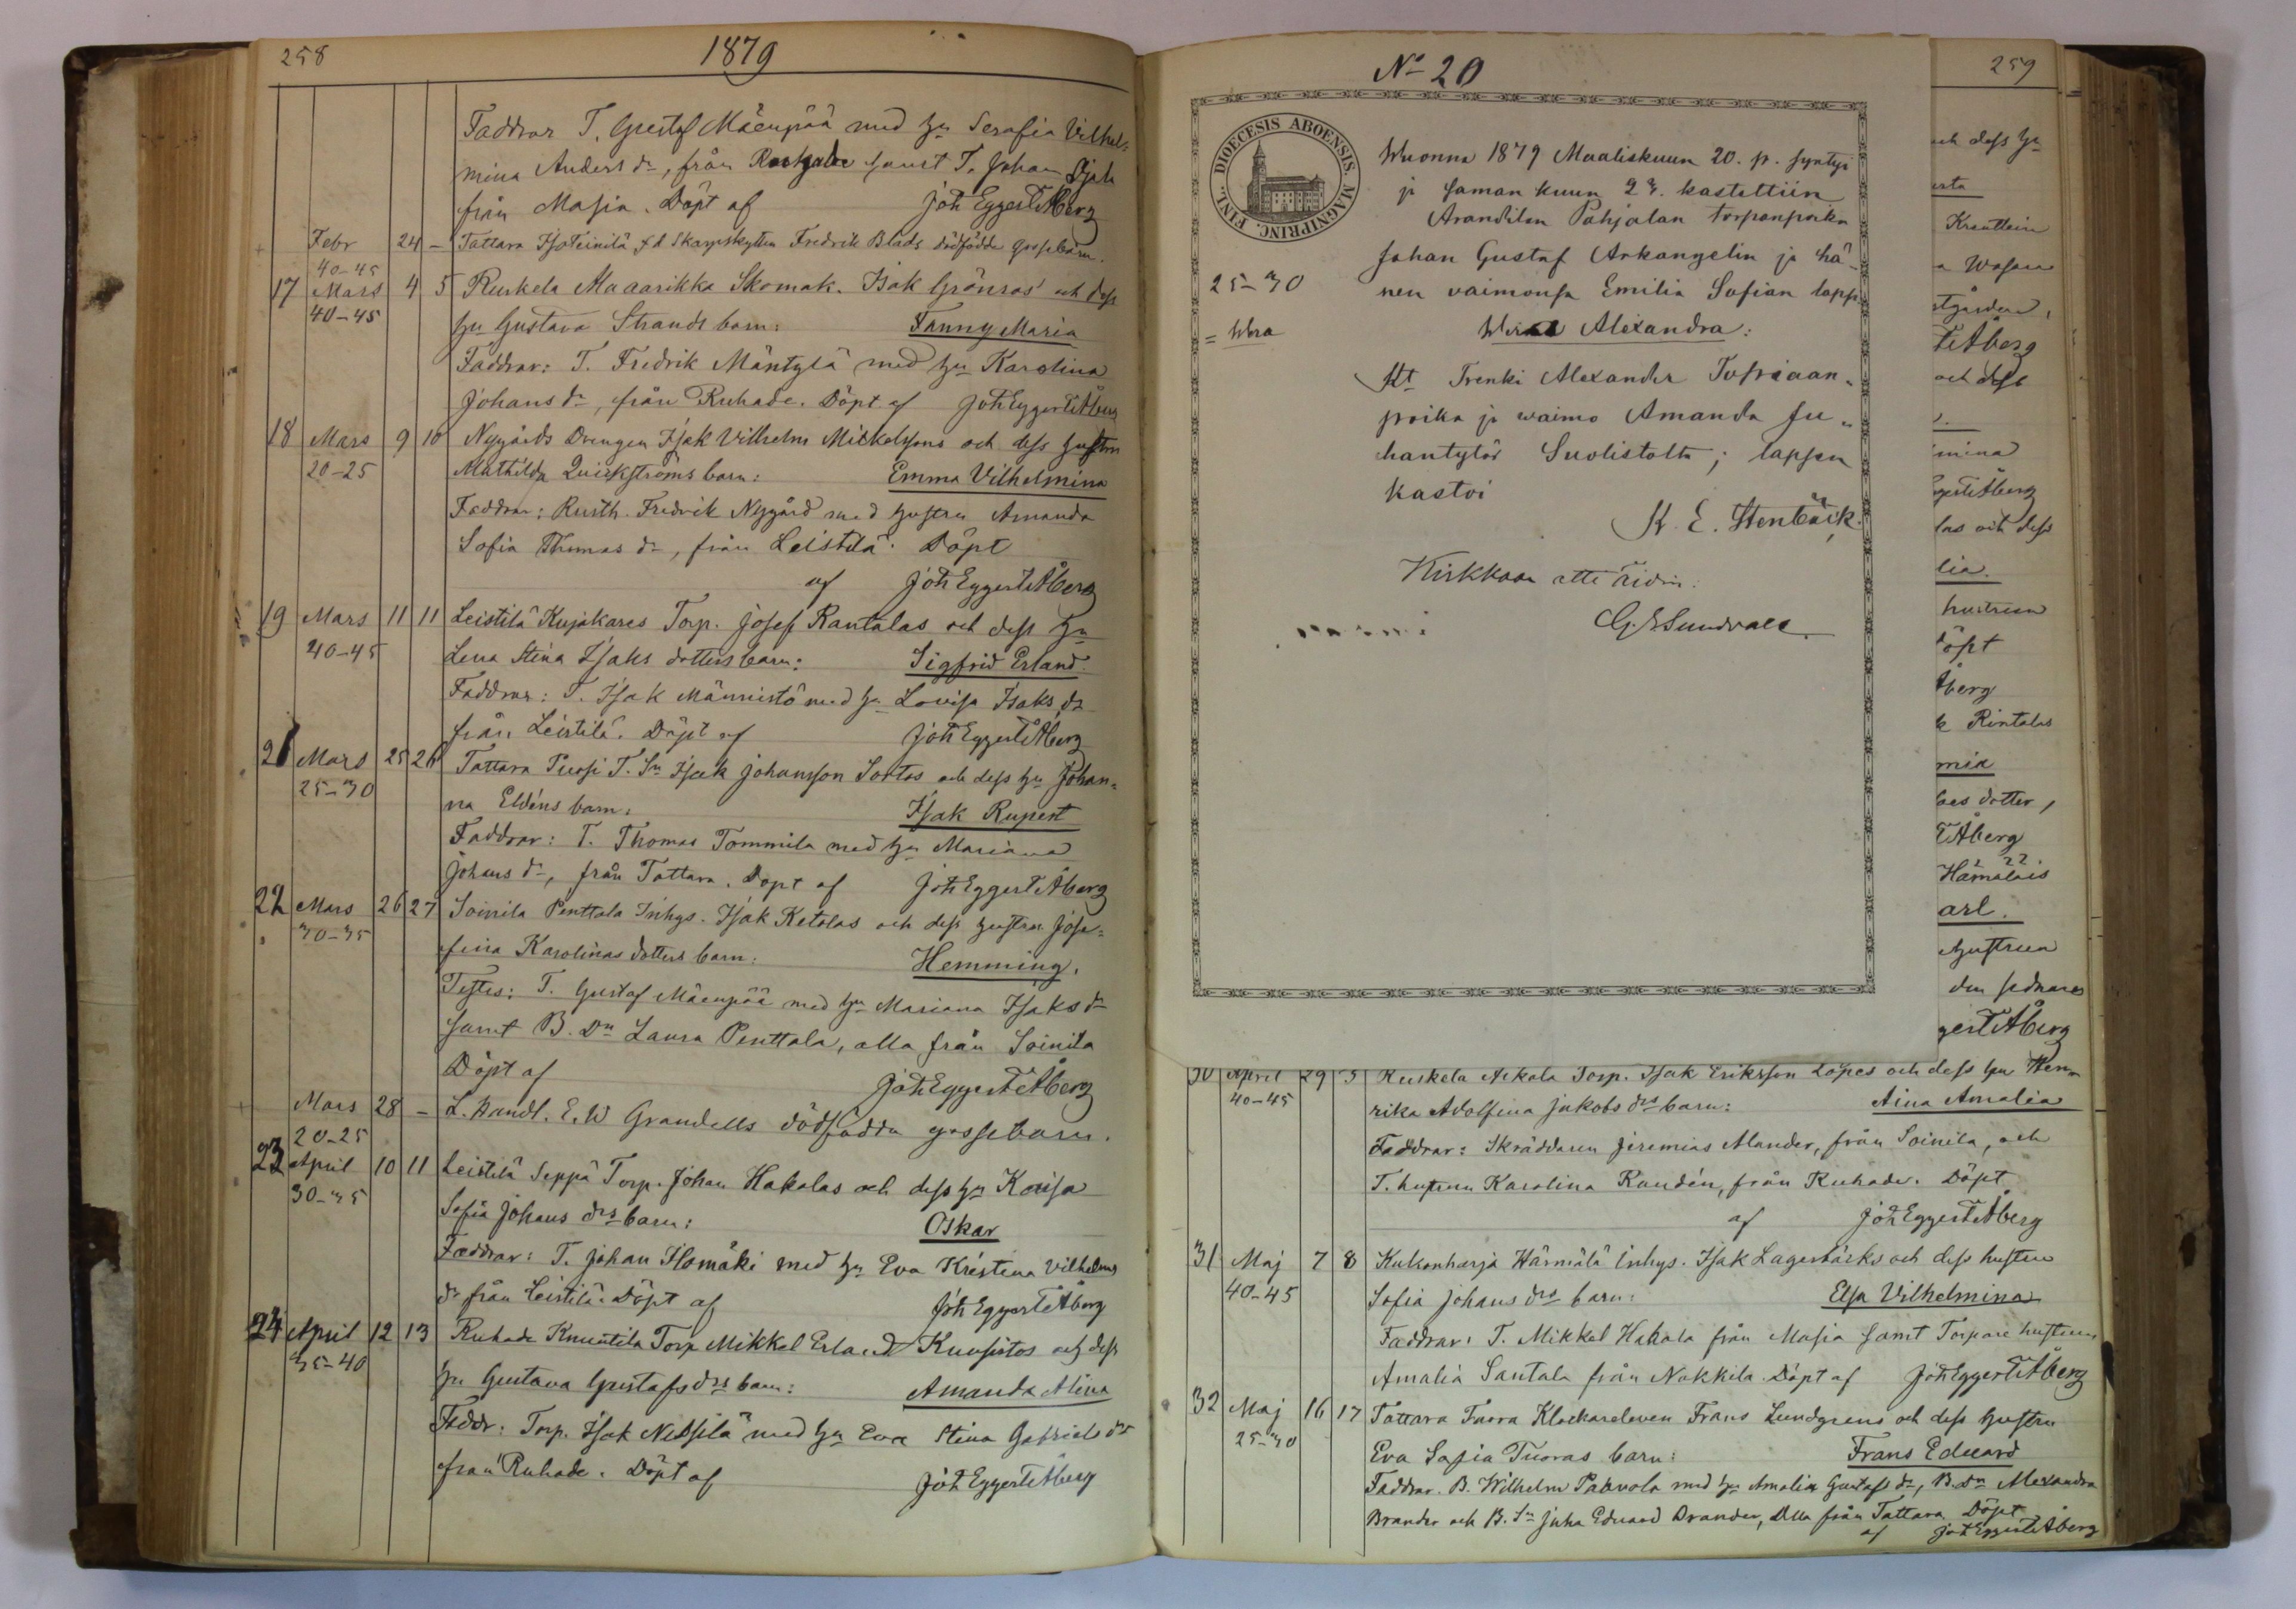 258
1879
Faddrar T. Gustaf Mäenpää med hu Serafia Vilhel=
mina Anders dr, från samt T. Johan
från Masia. Döpt af Joh Eggert Åberg
Febr 24 – Tattara IsoTeinilä f d Skarpskytten Fredrik Blads dödfödda gossebarn.
40-45
17 Mars 4 5 Ruskela Maaarikka Skomak. Isak Grönroos och dess
40-45
hu Gustava Strands barn: Fanny Maria
Faddrar: T. Fredrik Mäntylä med hu Karolina
Johans dr, från Ruhade. Döpt af Joh Eggert Åberg
18 Mars 9 10 Nygårds Drengen Isak Vilhelm Mickelssons och dess hustru
20-25 Mathilda Quickströms barn: Emma Vilhelmina
Faddrar: Rusth. Fredrik Nygård med hustru Amanda
Sofia Thomas dr, från Leistilä. Döpt
af Joh Eggert Åberg
19 Mars 11 11 Leistilä Kujakares Torp. Josef Rantalas och dess hu
40-45 Lena Stina Isaks dotters barn: Sigfrid Erland
Faddrar: T. Isak Männistö med hu Lovisa Isaks dr
från Leistilä. Döpt af Joh Eggert Åberg
21 Mars 25 26 Tattara T. Sn Isak Johansson Sortos och dess hu Johan=
25-30 na Eldéns barn: Isak Rupert
Faddrar: T. Thomas Tommila med hu Mariana
Johans dr, från Tattara. Döpt af Joh Eggert Åberg
22 Mars 26 27 Soinila Penttala Inhys. Isak Ketolas och dess hustru Jose=
30-35 fina Karolinas dotters barn: Hemming.
Testes: T. Gustaf Mäenpää med hu Mariana Isaks dr
samt B. Dn Laura Penttala, alla från Soinila
Döpt af Joh Eggert Åberg
Mars 28 – L. Handl. E. W Grandells dödfödda gossebarn.
20-25
23 April 10 11 Leistilä Seppä Torp. Johan Hakalas och dess hu Kaisa
30-35 Sofia Johans drs barn: Oskar
Faddrar: T. Johan Isomäki med hu Eva Kristina Vilhelms
dr från Leistilä. Döpt af Joh Eggert Åberg
24 April 12 13 Ruhade Knuutila Torp Mikkel Erland Kuusistos och dess
35-40 hu Gustava Gustafs drs barn: Amanda Alina
Faddr: Torp. Isak med hu Eva Stina Gabriels dr
från Ruhade. Döpt af Joh Eggert Åberg
No 20
DIOECESIS ABOENSIS. MAGNI PRINC. FINL.
Wuonna 1879 Maaliskuun 20. p. syntyi
ja saman kuun 23. kastettiin
Arandilan Pohjalan torpanpoika
Johan Gustaf Arkangelin ja hä=
25-30 nen vaimonsa Emilia Sofian laps
= Wera Alexandra:
Kt Trenki Alexander
poika ja waimo Amanda Ju=
hantytär Suolistolta; lapsen
kastoi
K. E. Stenbäck.
Kirkkoon otti äidin:
G. E Sundvall
259
och dess hu
a Wasan
stgården,
TÅberg
och dess
mina
Eggert Åberg
las och dess
lia.
hustrun
Döpt
Åberg
k Rintalas
mia
dotter,
TÅberg
Hämäläis
arl.
hustrun
den sednare
gert TÅberg
30 April 29 3 Ruskela Torp. Isak Eriksson Löpes och dess hu Hen=
40-45 rika Adolfina Jakobs drs barn: Aina Amalia
Faddrar: Skräddaren Jeremias Alander, från Soinila, och
T. hustrun Karolina Randén, från Ruhade. Döpt
af Joh Eggert Åberg
31 Maj 7 8 Kukonharja Härmälä Inhys. Isak Lagerbäcks och dess hustru
40-45 Sofia Johans drs barn: Elsa Vilhelmina
Faddrar: T. Mikkel Hakala från Masia samt Torpare hustrun
Amalia Santala från Nakkila. Döpt af Joh Eggert Åberg
32 Maj 16 17 Tattara Tuora Klockareleven Frans Lundgrens och dess hustru
25-30 Eva Sofia Tuoras barn: Frans Eduard
Faddrar. B. Wilhelm med hu Amalia Gustafs dr, B. dn Alexandra
Brander och B. Sn Juha Eduard Brander, Alla från Tattara. Döpt
af Joh Eggert Åberg